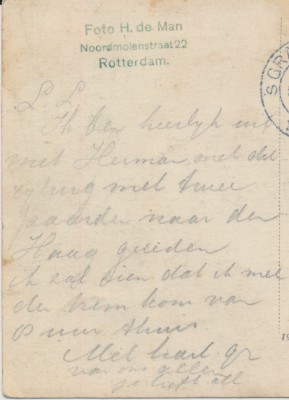 Foto H. de Man
Noordmolenstraat 22
Rotterdam.
S GRA
L L
Ik ben heerlijk uit
met Herman met dit
met twee
paarden naar den
Haag gereden
ik zal zien dat ik met
de trem kom van
8 uur thuis.
Met hart gr
van ons allen